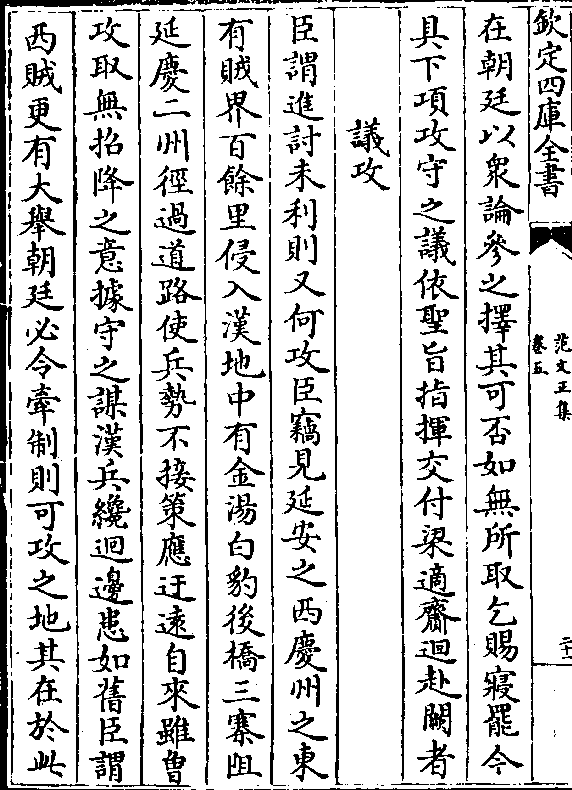 欽定四庫全書
范文正集
卷五
二十一
在朝廷以衆論參之擇其可否如無所取乞賜寢罷今
具下項攻守之議依聖旨指揮交付梁適齎迴赴闕者
議攻
臣謂進討未利則又何攻臣竊見延安之西慶州之東
有賊界百餘里侵入漢地中有金湯白豹後橋三寨阻
延慶二州徑過道路使兵勢不接策應迂遠自來雖曽
攻取無招降之意據守之謀漢兵纔迴邊患如舊臣謂
西賊更有大舉朝廷必令牽制則可攻之地其在於此